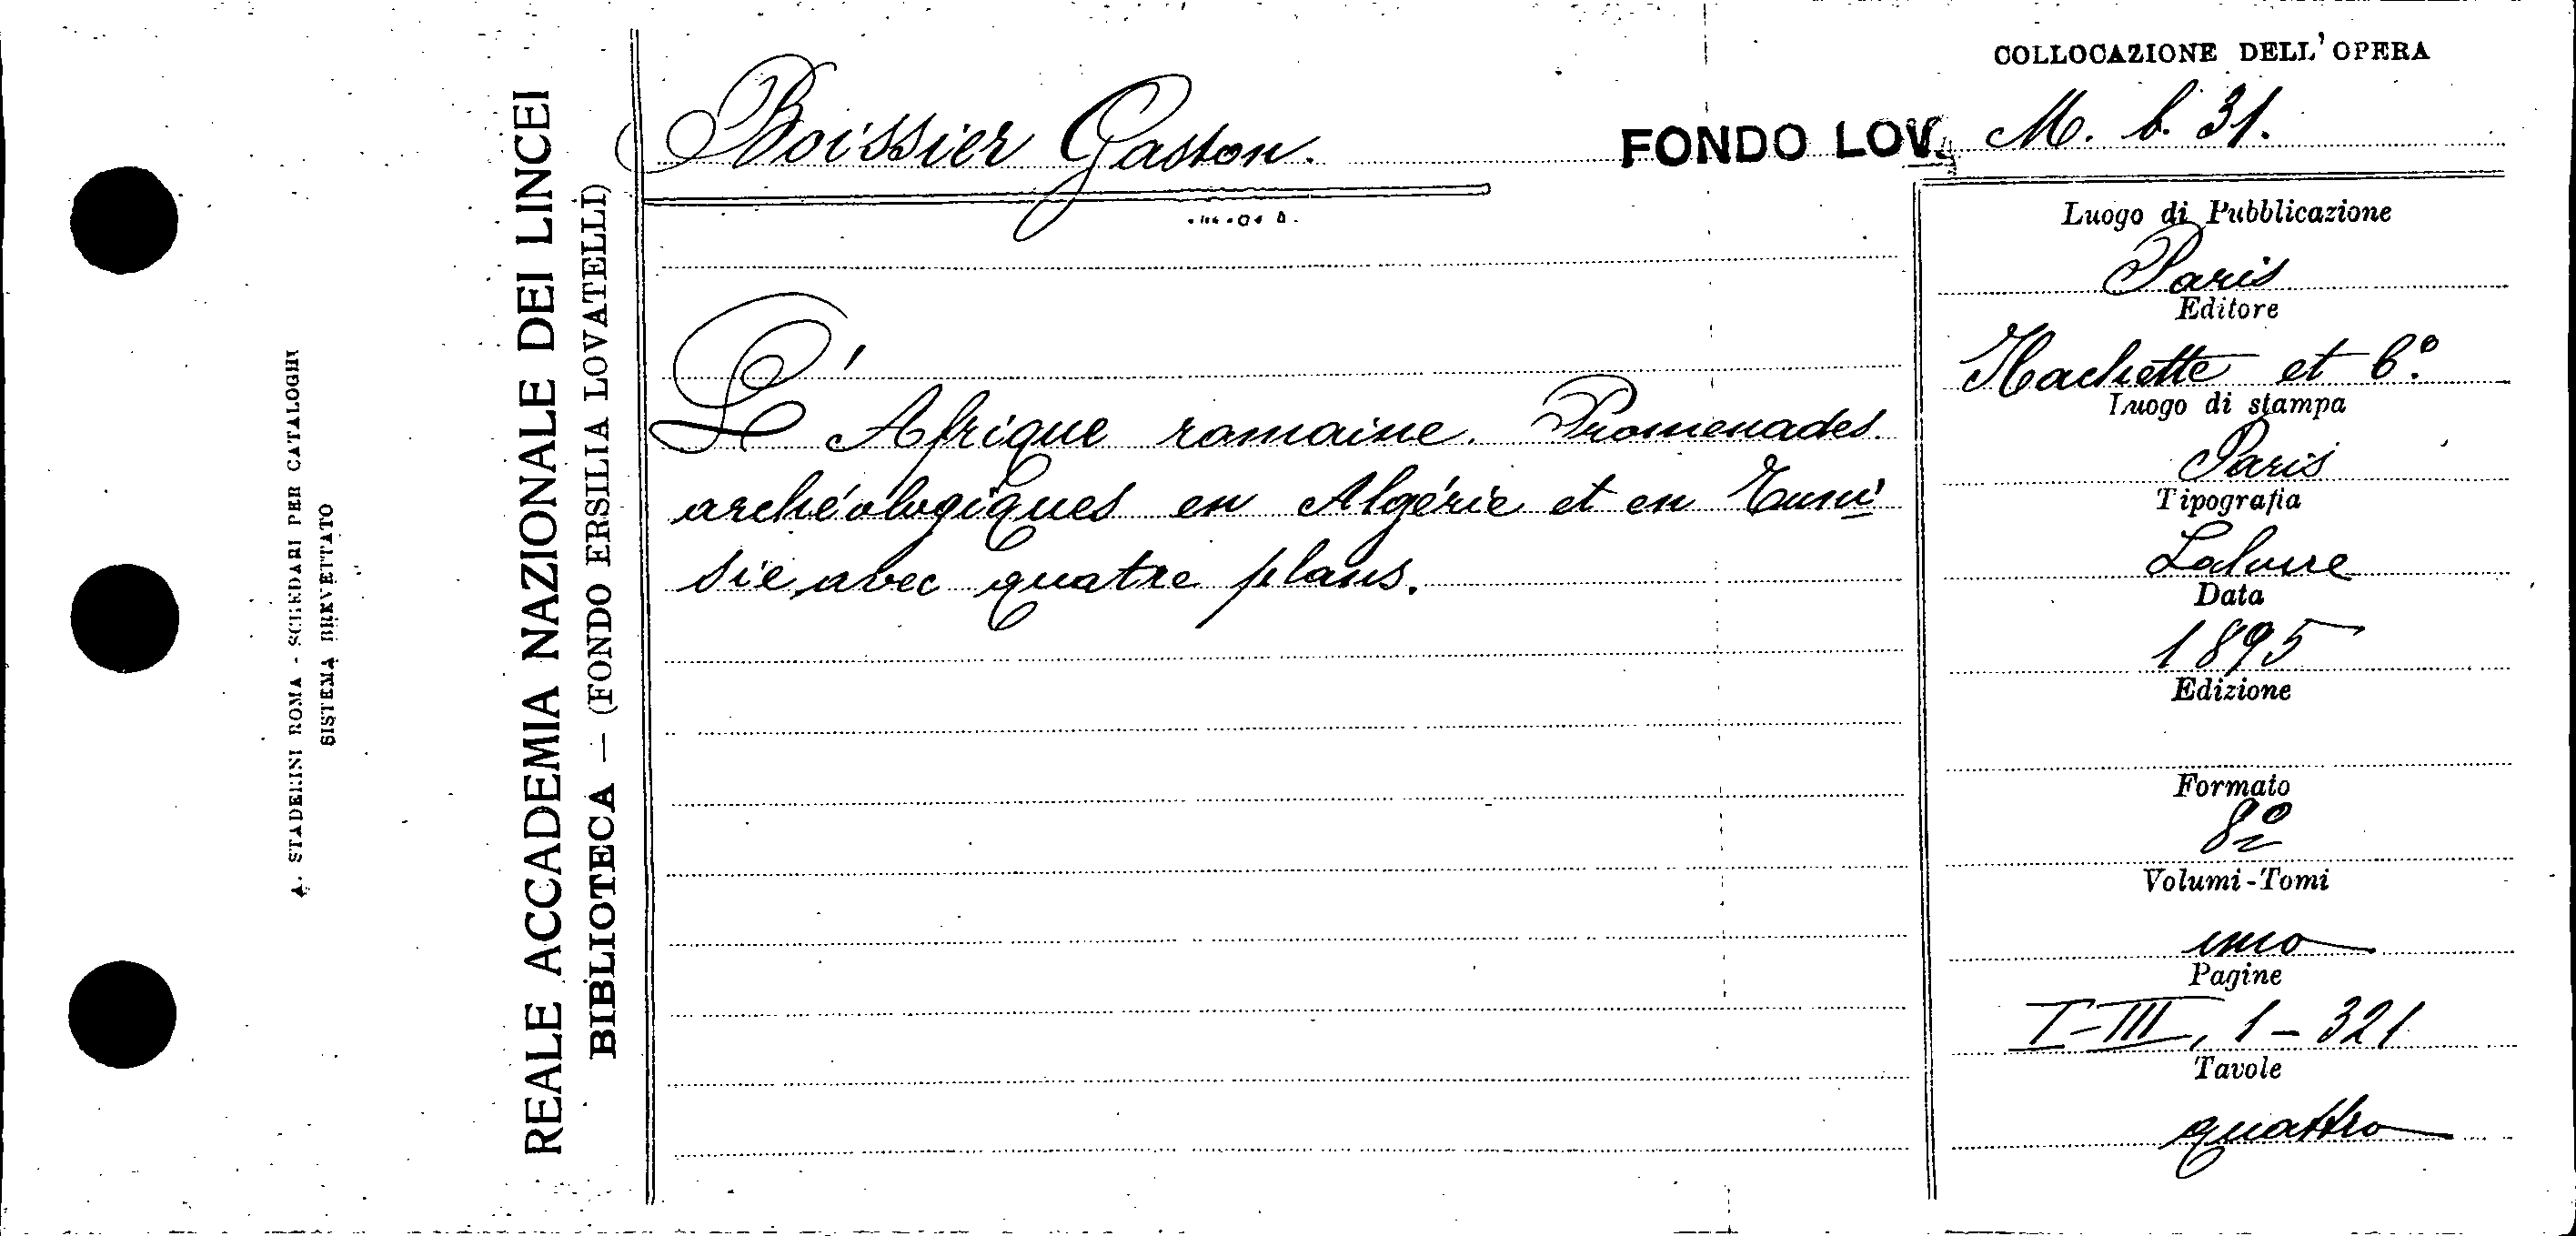 A. STADERINI ROMA - SCHEDARI PER CATALOGHI
SISTEMA BREVETTATO
REALE ACCADEMIA NAZIONALE DEI LINCEI
BIBLIOTECA — (FONDO ERSILIA LOVATELLI)
Boissier Gaston.
L'Afrique romaine. Promenades
archéologiques en Algérie et en Tuni
sie avec quatre plans.
COLLOCAZIONE DELL'OPERA
FONDO LOV. M. b. 31.
Luogo di Pubblicazione
Paris
Editore
Hachette et C.º
Luogo di stampa
Paris
Tipografia
Lahure
Data
1895
Edizione
Formato
8º
Volumi-Tomi
uno
Pagine
I-III, 1-321
Tavole
quattro